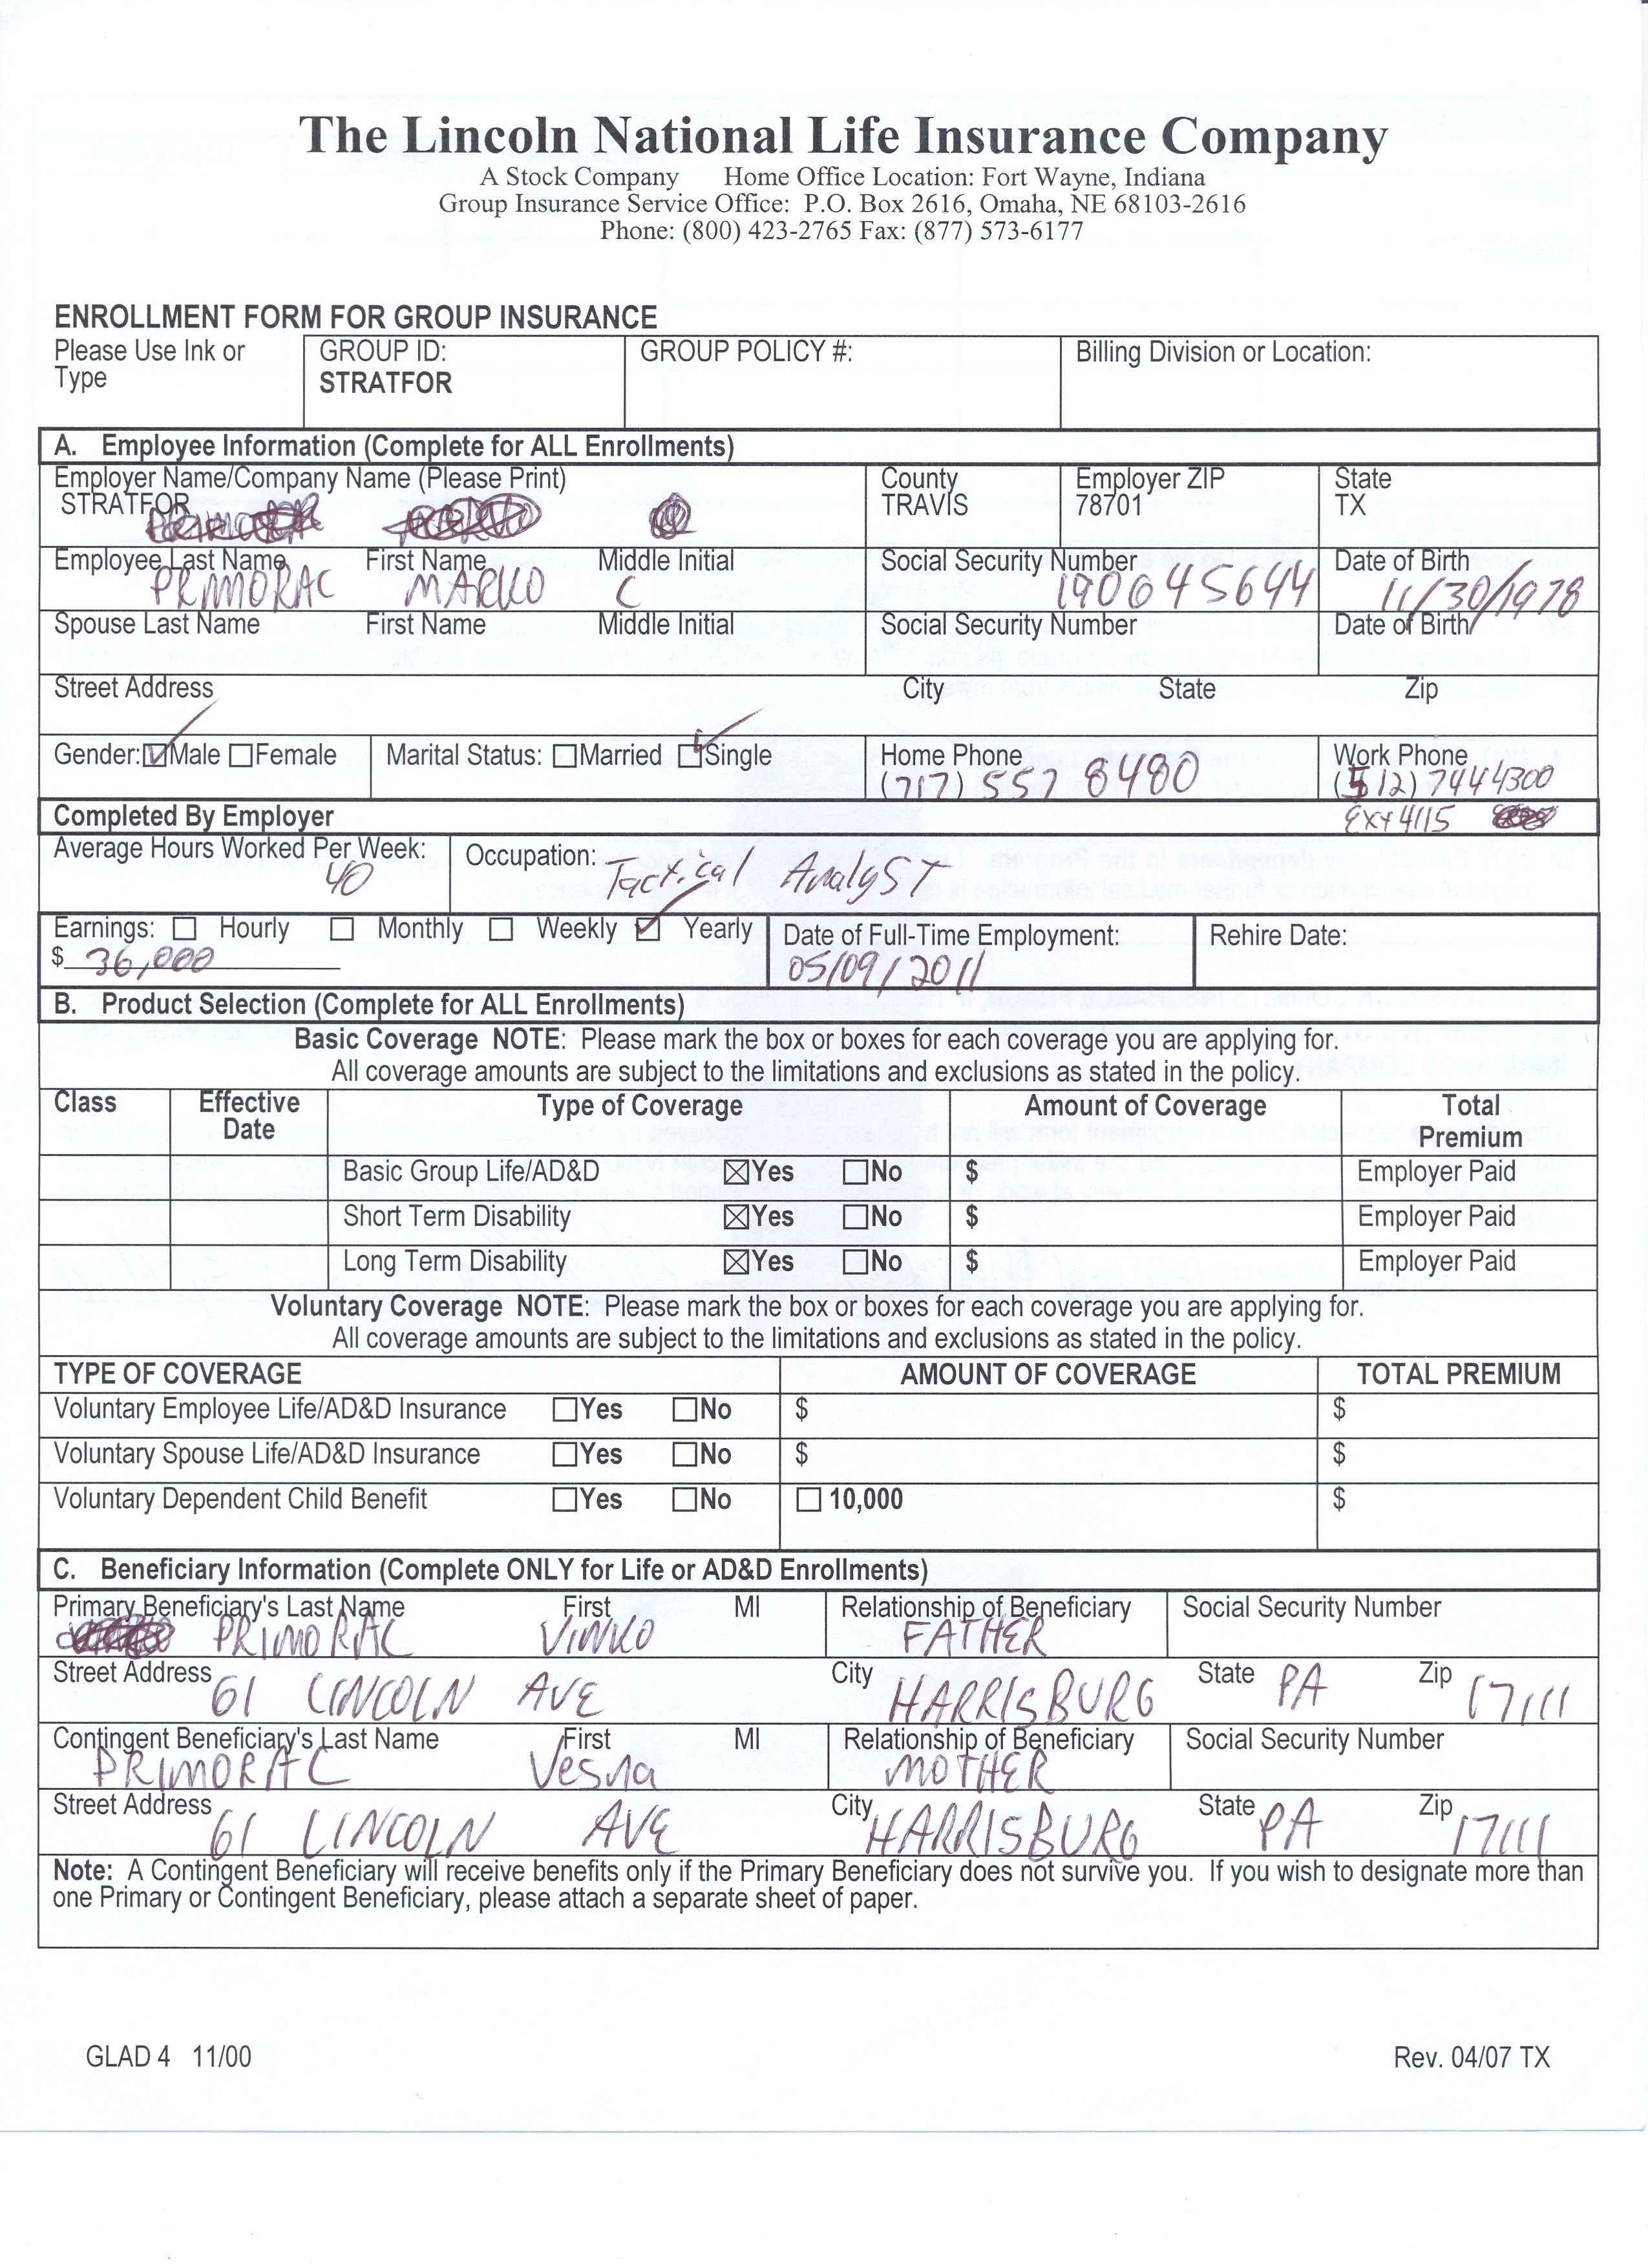 The Lincoln National Life Insurance Company
A Stock Company Home Office Location: Fort Wayne, Indiana
Group Insurance Service Office: P.O. Box 2616, Omaha, NE 68103-2616
Phone: (800) 423-2765 Fax: (877) 573-6177
ENROLLMENT FORM FOR GROUP INSURANCE
Please Use Ink or GROUP ID: GROUP POLICY #: Billing Division or Location:
Type STRATFOR
A. Employee Information (Complete for ALL Enrollments)
Employer Name/Company Name (Please Print) County Employer ZIP State
STRATFOR TRAVIS 78701 TX
Employee Last Name First Name Middle Initial Social Security Number Date of Birth
PRIMORAC MARKO C 190645644 11/30/1978
Spouse Last Name First Name Middle Initial Social Security Number Date of Birth
Street Address City State Zip
Gender: Male Female Marital Status: Married Single Home Phone Work Phone
(717) 557 8480 (512) 7444300
Completed By Employer Ext 4115
Average Hours Worked Per Week: Occupation:
40 Tactical Analyst
Earnings: Hourly Monthly Weekly Yearly Date of Full-Time Employment: Rehire Date:
$ 36,000 05/09/2011
B. Product Selection (Complete for ALL Enrollments)
Basic Coverage NOTE: Please mark the box or boxes for each coverage you are applying for.
All coverage amounts are subject to the limitations and exclusions as stated in the policy.
Class Effective Type of Coverage Amount of Coverage Total
Date Premium
Basic Group Life/AD&D Yes No $ Employer Paid
Short Term Disability Yes No $ Employer Paid
Long Term Disability Yes No $ Employer Paid
Voluntary Coverage NOTE: Please mark the box or boxes for each coverage you are applying for.
All coverage amounts are subject to the limitations and exclusions as stated in the policy.
TYPE OF COVERAGE AMOUNT OF COVERAGE TOTAL PREMIUM
Voluntary Employee Life/AD&D Insurance Yes No $ $
Voluntary Spouse Life/AD&D Insurance Yes No $ $
Voluntary Dependent Child Benefit Yes No 10,000 $
C. Beneficiary Information (Complete ONLY for Life or AD&D Enrollments)
Primary Beneficiary's Last Name First MI Relationship of Beneficiary Social Security Number
PRIMORAC VINKO FATHER
Street Address City State Zip
61 LINCOLN AVE HARRISBURG PA 17111
Contingent Beneficiary's Last Name First MI Relationship of Beneficiary Social Security Number
PRIMORAC Vesna MOTHER
Street Address City State Zip
61 LINCOLN AVE HARRISBURG PA 17111
Note: A Contingent Beneficiary will receive benefits only if the Primary Beneficiary does not survive you. If you wish to designate more than
one Primary or Contingent Beneficiary, please attach a separate sheet of paper.
GLAD 4 11/00 Rev. 04/07 TX